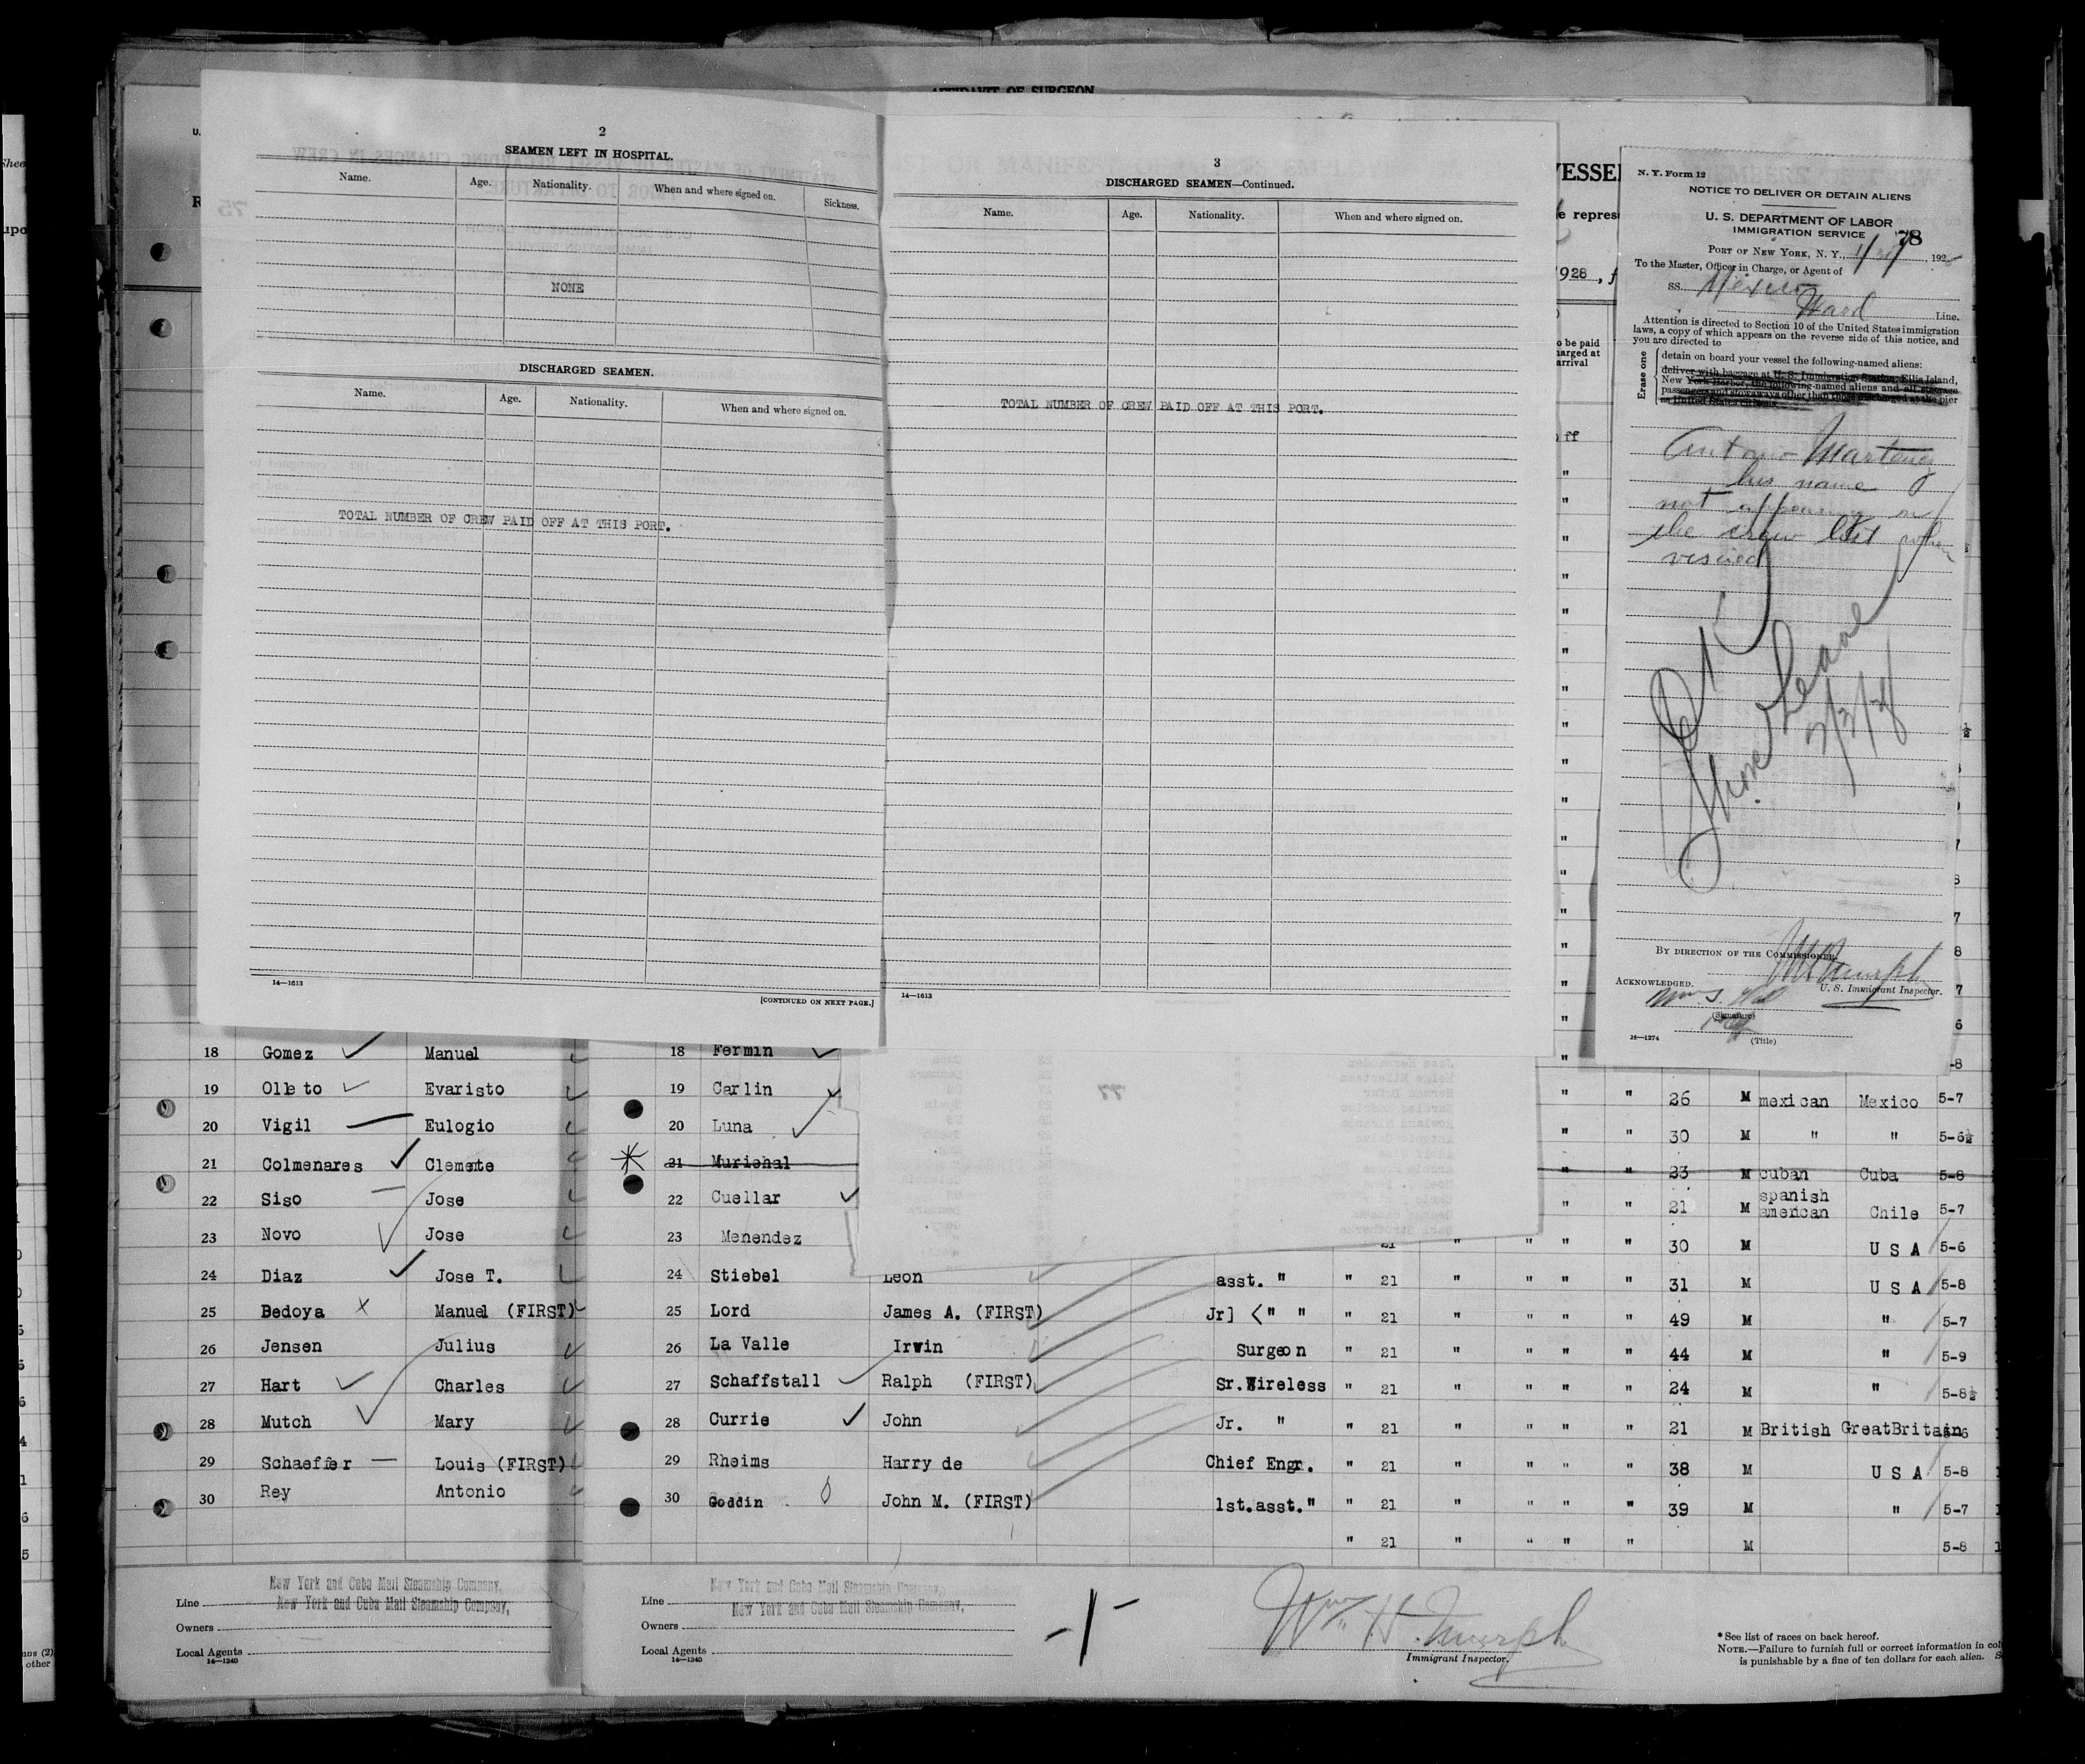 AFFIDAVIT OF SURGEON
2
SEAMEN LEFT IN HOSPITAL.
Name. Age. Nationality. When and where signed on. Sickness.
NONE
DISCHARGED SEAMEN.
Name. Age. Nationality. When and where signed on.
TOTAL NUMBER OF CREW PAID OFF AT THIS PORT.
14—1613
[CONTINUED ON NEXT PAGE.]
3
DISCHARGED SEAMEN—Continued.
Name. Age. Nationality. When and where signed on.
TOTAL NUMBER OF CREW PAID OFF AT THIS PORT.
14—1613
VESSEL
e repres
1928, f
o be paid
harged at
arrival
off
N. Y. Form 12
NOTICE TO DELIVER OR DETAIN ALIENS
U. S. DEPARTMENT OF LABOR
IMMIGRATION SERVICE
78
PORT OF NEW YORK, N. Y., 1/31 192
To the Master, Officer in Charge, or Agent of
SS. Mexico
Ward Line.
Attention is directed to Section 10 of the United States immigration
laws, a copy of which appears on the reverse side of this notice, and
you are directed to
Erase one
detain on board your vessel the following-named aliens:
deliver with baggage at U. S. Immigration Station, Ellis Island,
New York Harbor, the following-named aliens and all steerage
passengers and stowaways other than those discharged at the pier
as United States citizens.
Antonio Martinez
his name
not appearing on
the crew list when
visied
OK
Shore Leave
2/2/28
BY DIRECTION OF THE COMMISSIONER.
Wm H Murph
U. S. Immigrant Inspector.
ACKNOWLEDGED.
Wm S.
(Signature)
(Title)
14—1274
18 Gomez Manuel
19 Olleto Evaristo
20 Vigil Eulogio
21 Colmenares Clemente
22 Siso Jose
23 Novo Jose
24 Diaz Jose T.
25 Bedoya X Manuel (FIRST)
26 Jensen Julius
27 Hart Charles
28 Mutch Mary
29 Schaeffer Louis (FIRST)
30 Rey Antonio
Line New York and Cuba Mail Steamship Company.
New York and Cuba Mail Steamship Company,
Owners
Local Agents
14—1240
18 Fermin
19 Carlin " " 26 M mexican Mexico 5-7
20 Luna " " 30 M " " 5-6½
21 Murichal " " 23 M cuban Cuba 5-8
22 Cuellar " " 21 M spanish american Chile 5-7
23 Menendez 21 " " " " 30 M U S A 5-6
24 Stiebel Leon asst. " " 21 " " " " 31 M U S A 5-8
25 Lord James A. (FIRST) Jr] < " " " 21 " " " " 49 M " 5-7
26 La Valle Irwin Surgeon " 21 " " " " 44 M " 5-9
27 Schaffstall Ralph (FIRST) Sr.Wireless " 21 " " " " 24 M " 5-8½
28 Currie John Jr. " " 21 " " " " 21 M British GreatBritain 5-6
29 Rheims Harry de Chief Engr. " 21 " " " " 38 M U S A 5-8
30 Goddin John M. (FIRST) 1st.asst." " 21 " " " " 39 M " 5-7
" 21 " " " " M 5-8
Line New York and Cuba Mail Steamship Company,
New York and Cuba Mail Steamship Company,
Owners
Local Agents
14—1240
Wm. H. Murph
Immigrant Inspector.
* See list of races on back hereof.
NOTE.—Failure to furnish full or correct information in col
is punishable by a fine of ten dollars for each alien. S